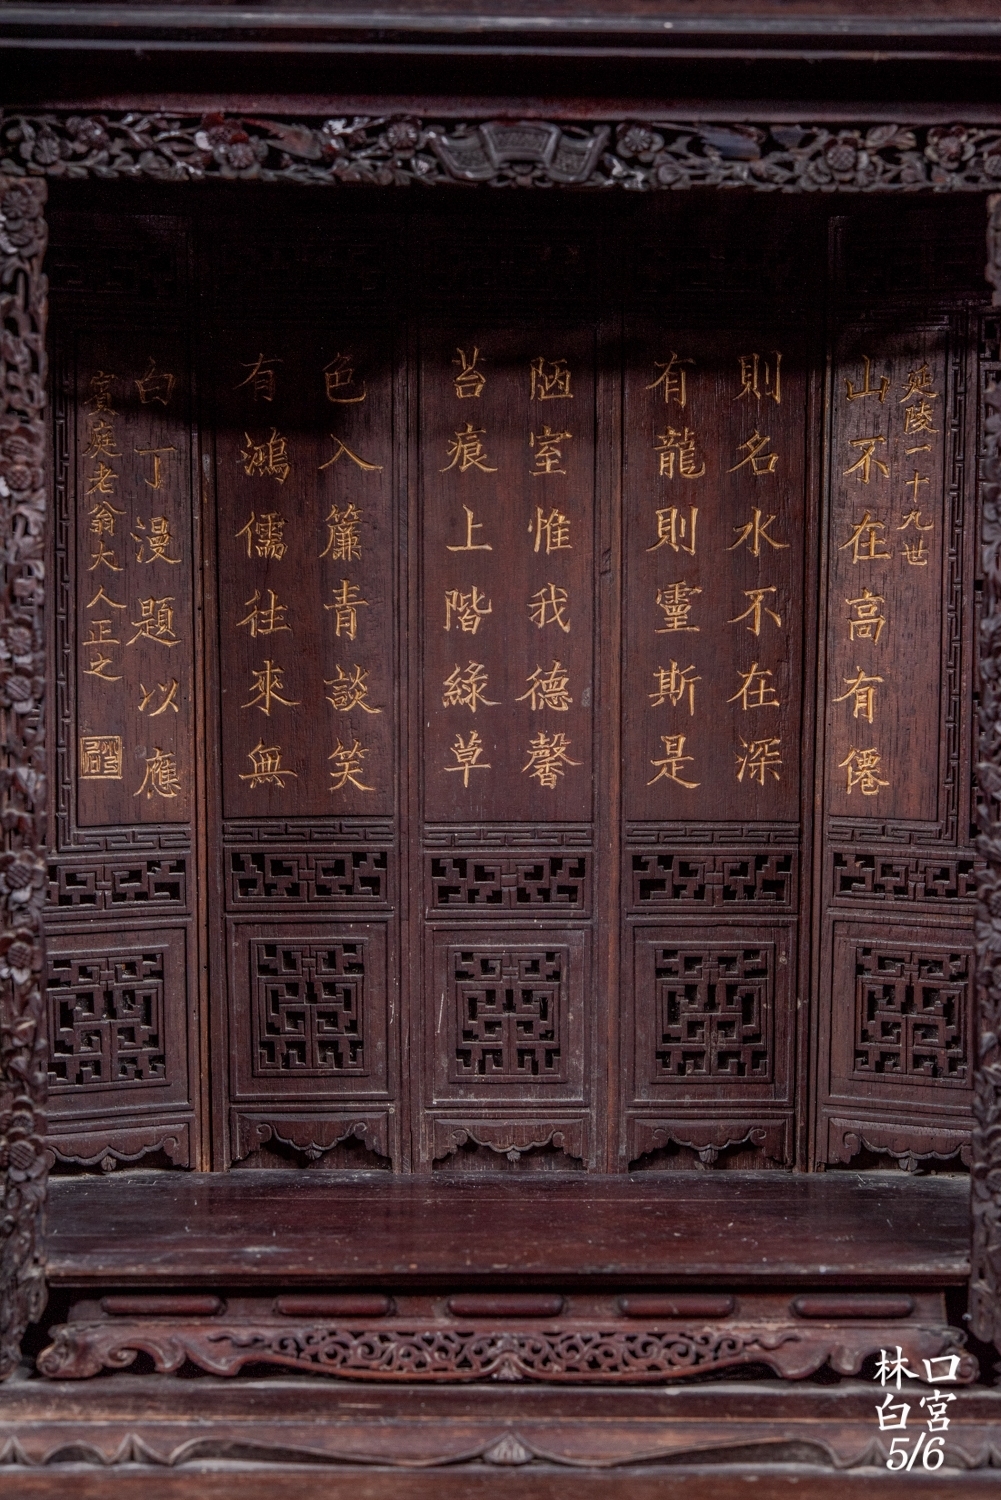 延陵一十九世
山不在高有僊
則名水不在深
有龍則靈斯是
陋室惟我德馨
苔痕上階綠草
色入簾青談笑
有鴻儒往來無
白丁漫題以應
賓庭老翁大人正之
林口
白宮
5/6